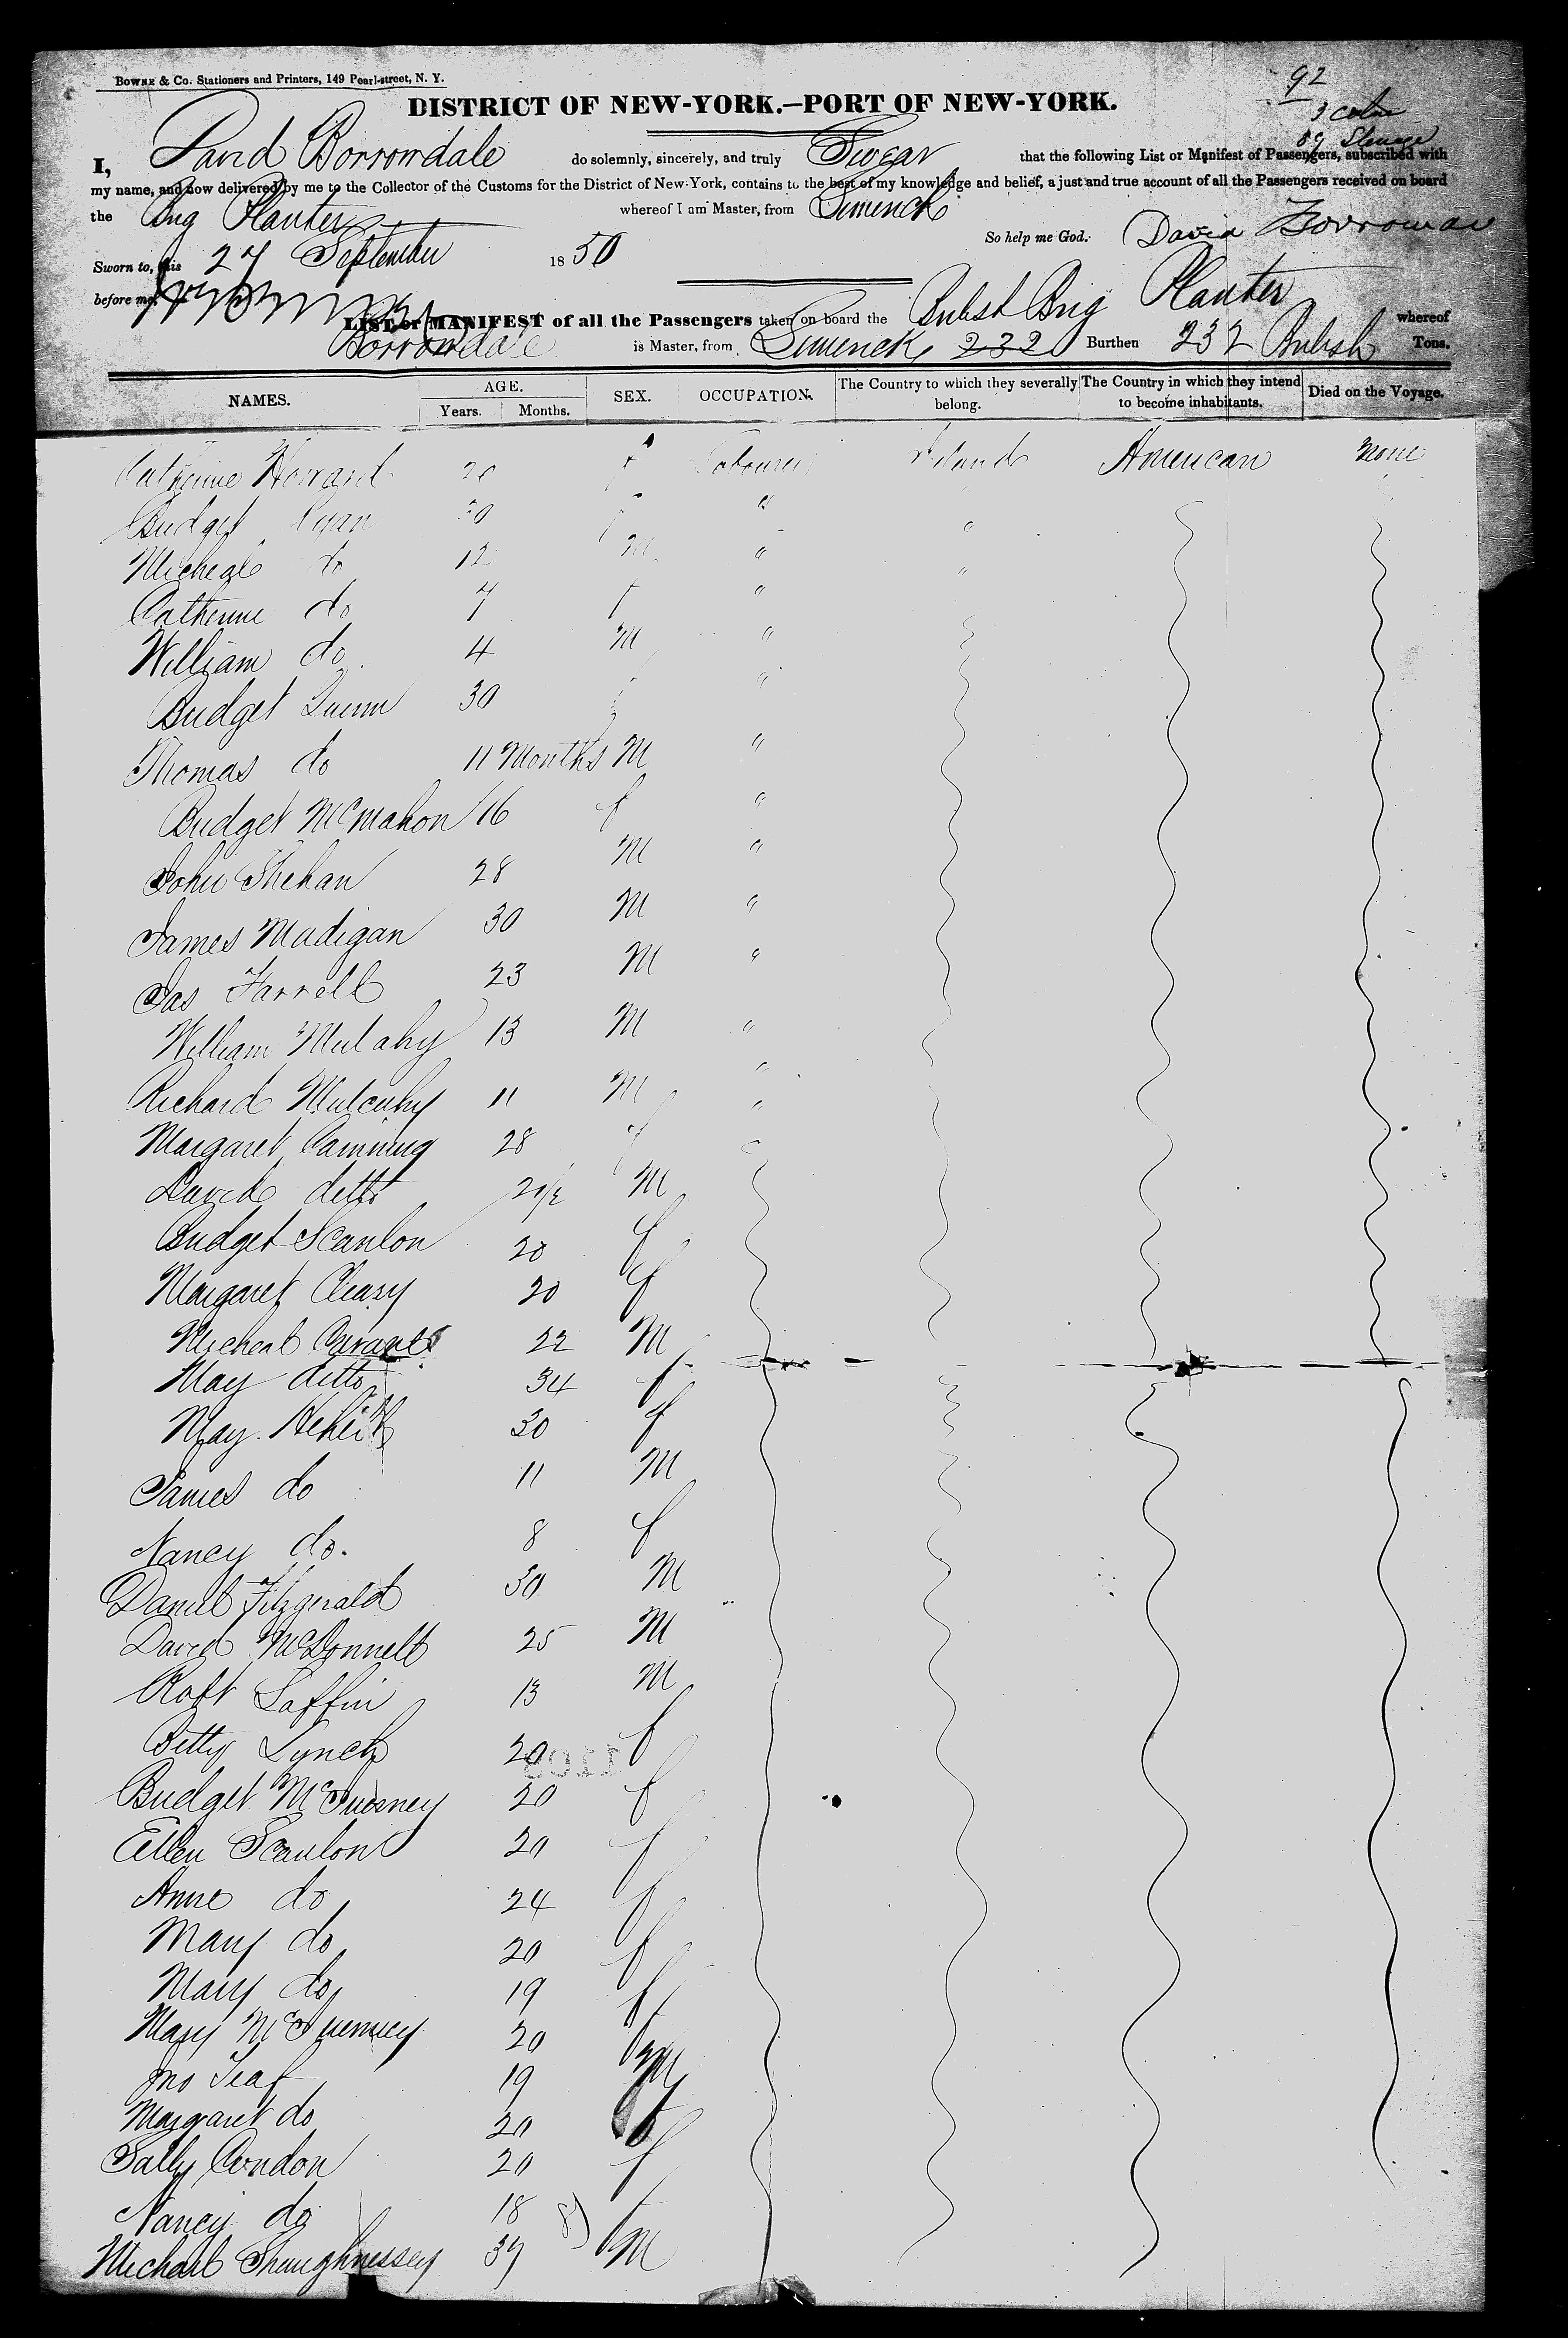 BOWNE & Co. Stationers and Printers, 149 Pearl-street, N. Y.
92
DISTRICT OF NEW-YORK.—PORT OF NEW-YORK.
89 Steerage
I, David Borrowdale do solemnly, sincerely, and truly Swear that the following List or Manifest of Passengers, subscribed with
my name, and now delivered by me to the Collector of the Customs for the District of New-York, contains to the best of my knowledge and belief, a just and true account of all the Passengers received on board
the Brig Planter whereof I am Master, from Limerick
So help me God. David Borrowdale
Sworn to, this 27 September 1850
before me,
LIST or MANIFEST of all the Passengers taken on board the British Brig Planter whereof
Borrowdale is Master, from Limerick 232 Burthen 232 British Tons.
NAMES. AGE. SEX. OCCUPATION. The Country to which they severally belong. The Country in which they intend to become inhabitants. Died on the Voyage.
Years. Months.
Catherine Howard 20 f Labourer Ireland American None
Bridget Ryan 30 f " "
Micheal do 12 M " "
Catherine do 7 f "
William do 4 M "
Bridget Quinn 30 "
Thomas do 11 Months M "
Bridget McMahon 16 f "
John Shehan 28 M "
James Madigan 30 M "
Jas Farrell 23 M "
William Mulahy 13 M "
Richard Mulcahy 11 M "
Margaret Camming 28 f "
David ditto 2 1/2 M
Bridget Scanlon 20 f
Margaret Cleary 20 f
Micheal 22 M
May ditto 34 f
May 30 f
James do 11 M
Nancy do. 8 f
Daniel Fitzgerald 30 M
David McDonnell 25 M
Robt Laffin 13 M
Betty Lynch 20 f
Bridget 20 f
Ellen Scanlon 20 f
Anne do 24 f
Mary do 20 f
Mary do 19 f
Mary 20 f
Jno Leaf 19 M
Margaret do 20 f
Sally Condon 20 f
Nancy do 18 f
Michael Shaughnessey 37 M